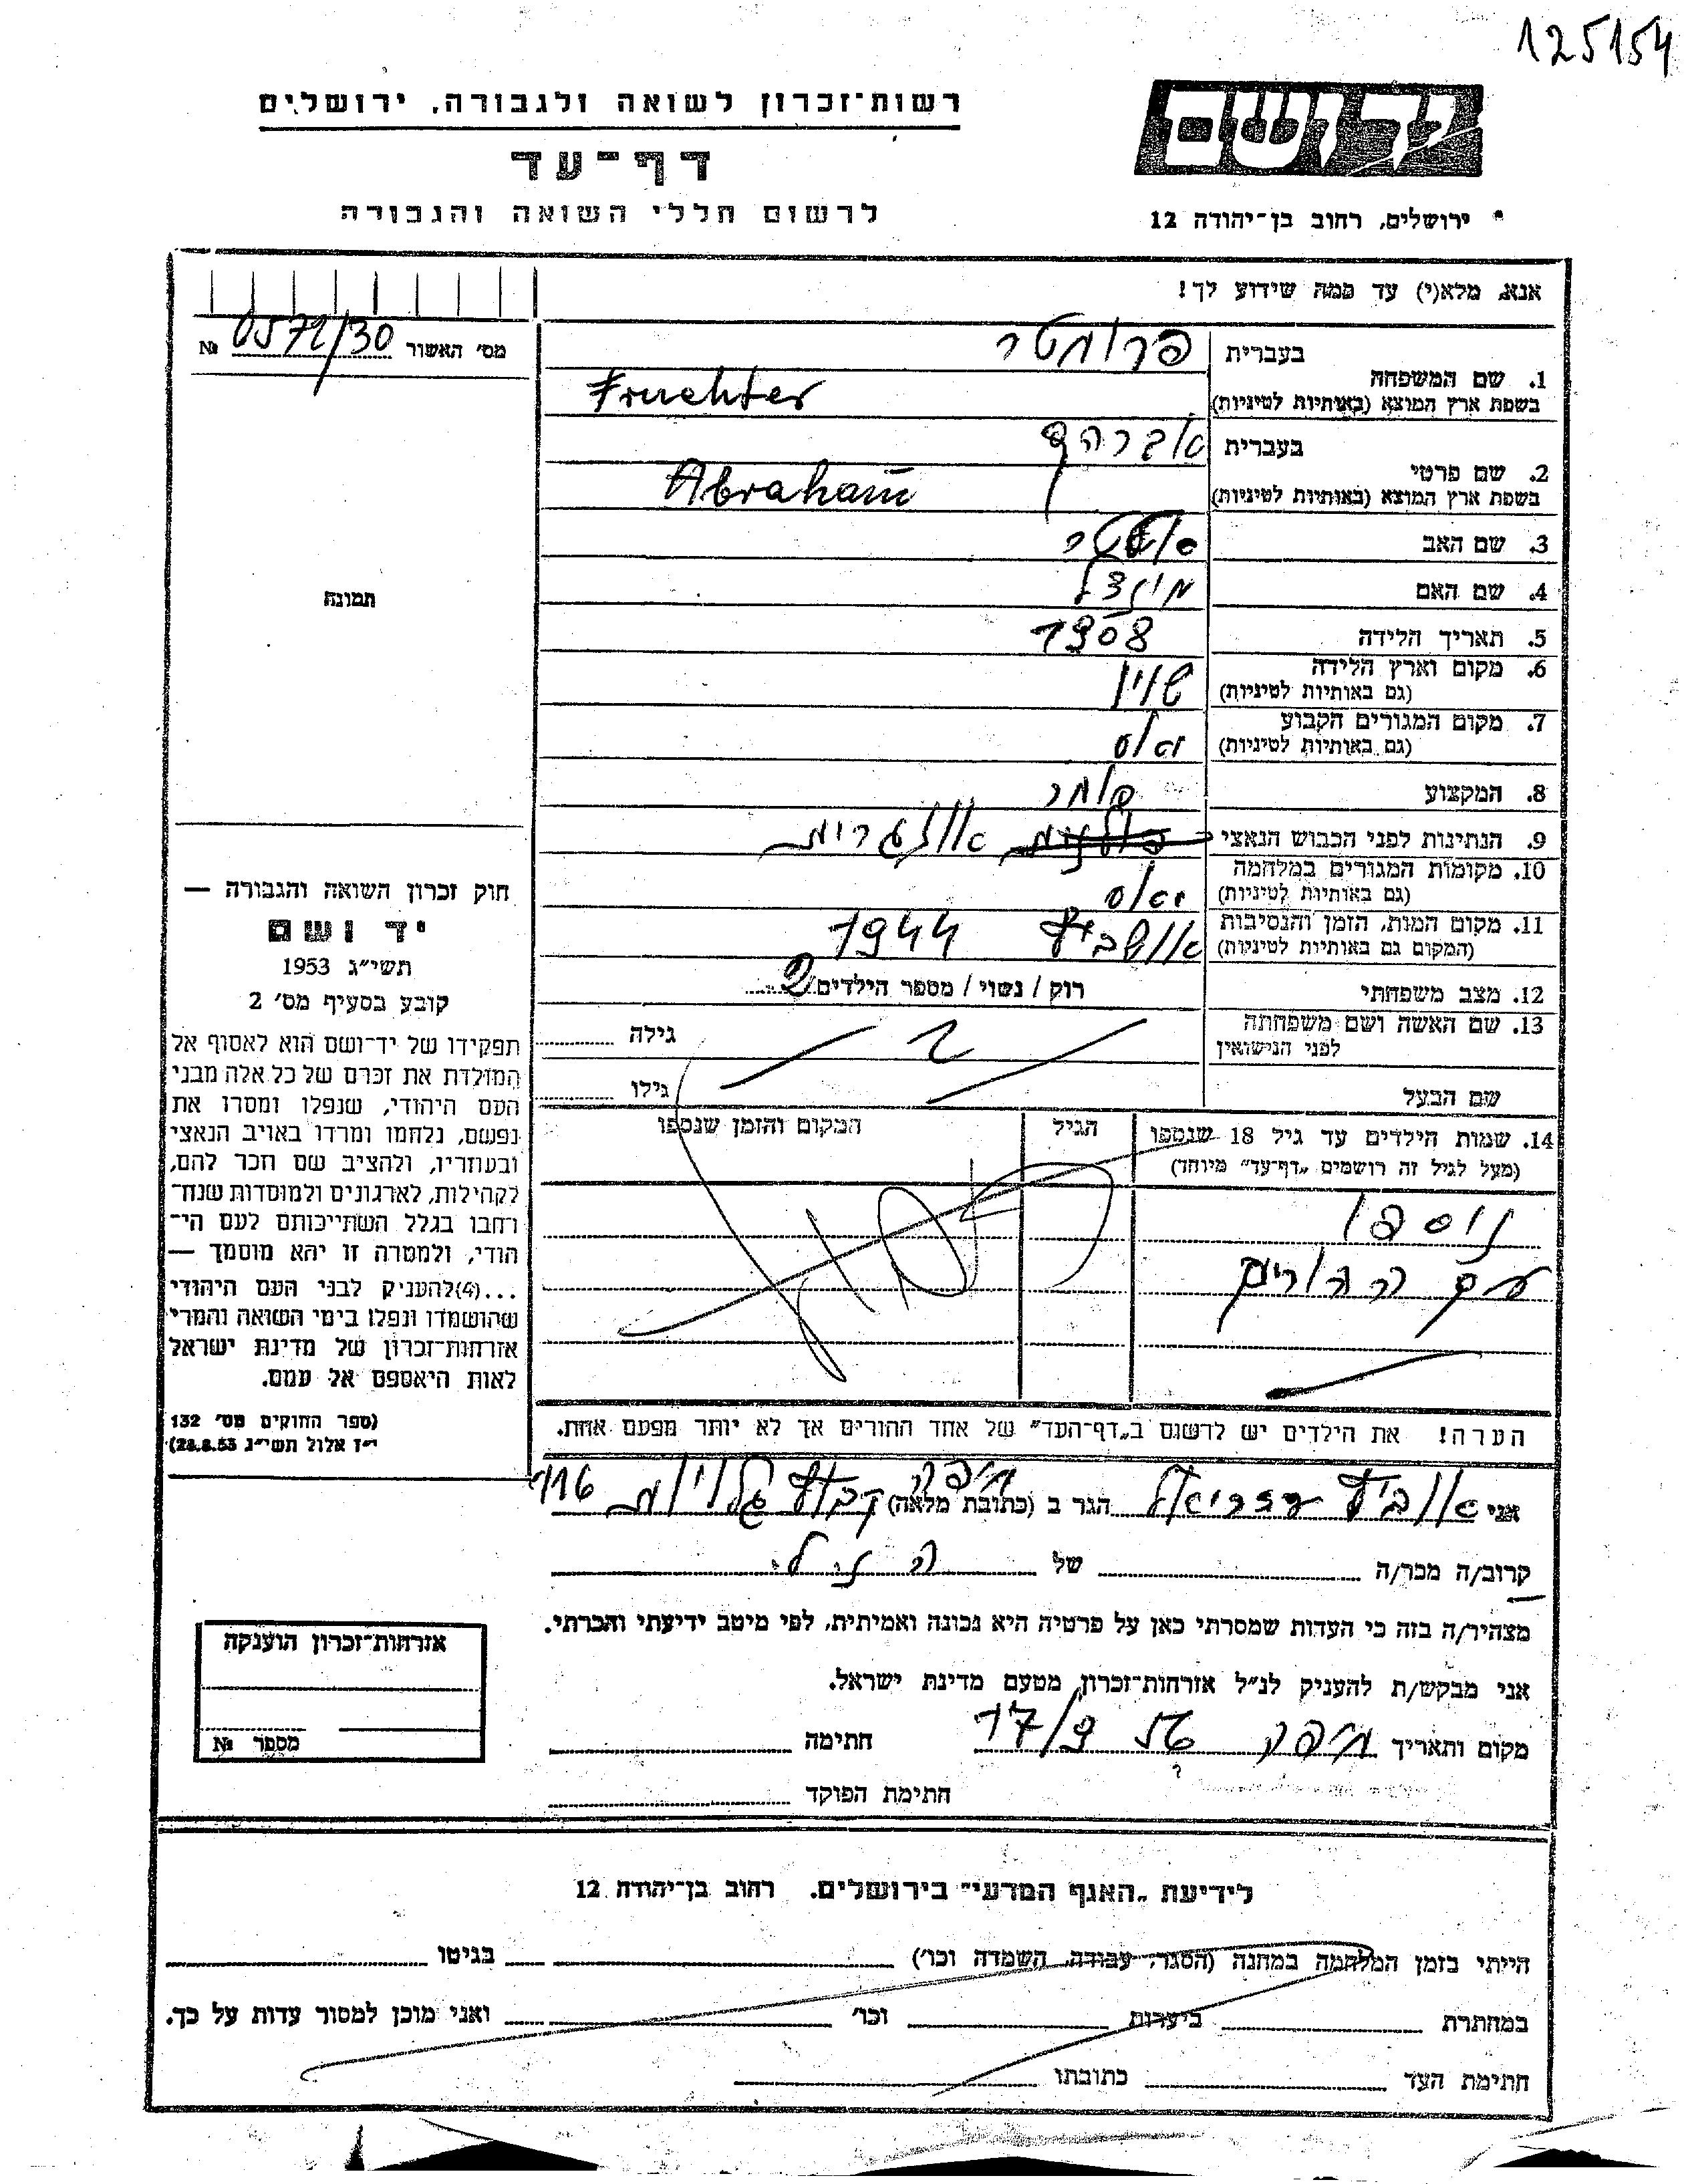 125154
יד ושם
רשות־זכרון לשואה ולגבורה, ירושלים
דף־עד
לרשום חללי השואה והגבורה
ירושלים, רחוב בן־יהודה 12
אנא, מלא(י) עד כמה שידוע לך!
מס׳ האשור 0571/30 №
1. שם המשפחה
בעברית פרוכטר
בשפת ארץ המוצא (באותיות לטיניות) Fruchter
2. שם פרטי
בעברית אברהם
בשפת ארץ המוצא (באותיות לטיניות) Abraham
3. שם האב
4. שם האם
5. תאריך הלידה 1908
6. מקום וארץ הלידה
(גם באותיות לטיניות)
7. מקום המגורים הקבוע
(גם באותיות לטיניות) יאס
8. המקצוע סוחר
9. הנתינות לפני הכבוש הנאצי אונגרית
10. מקומות המגורים במלחמה
(גם באותיות לטיניות) יאס
11. מקום המות, הזמן והנסיבות
(המקום גם באותיות לטיניות) אושביץ 1944
12. מצב משפחתי רוק / נשוי / מספר הילדים 2
13. שם האשה ושם משפחתה
לפני הנישואין
גילה
שם הבעל
גילו
14. שמות הילדים עד גיל 18 שנספו
(מעל לגיל זה רושמים „דף־עד״ מיוחד)
הגיל
המקום והזמן שנספו
נוספו
עם ההורים
הערה! את הילדים יש לרשום ב„דף־העד״ של אחד ההורים אך לא יותר מפעם אחת.
תמונה
חוק זכרון השואה והגבורה —
יד ושם
תשי״ג 1953
קובע בסעיף מס׳ 2
תפקידו של יד־ושם הוא לאסוף אל
המולדת את זכרם של כל אלה מבני
העם היהודי, שנפלו ומסרו את
נפשם, נלחמו ומרדו באויב הנאצי
ובעוזריו, ולהציב שם וזכר להם,
לקהילות, לארגונים ולמוסדות שנח־
רחבו בגלל השתייכותם לעם הי־
הודי, ולמטרה זו יהא מוסמך —
...(4)להעניק לבני העם היהודי
שהושמדו ונפלו בימי השואה והמרי
אזרחות־זכרון של מדינת ישראל
לאות היאספם אל עמם.
(ספר החוקים מס׳ 132
י״ז אלול תשי״ג 28.8.53)
אני הגר ב (כתובת מלאה) חיפה קבוץ גלויות 116
קרוב/ה מכר/ה של הנ״ל
מצהיר/ה בזה כי העדות שמסרתי כאן על פרטיה היא נכונה ואמיתית, לפי מיטב ידיעתי והכרתי.
אני מבקש/ת להעניק לנ״ל אזרחות־זכרון מטעם מדינת ישראל.
מקום ותאריך חיפה 17/9 חתימה
חתימת הפוקד
אזרחות־זכרון הוענקה
מספר №
לידיעת „האגף המדעי״ בירושלים. רחוב בן־יהודה 12
הייתי בזמן המלחמה במחנה (הסגר, עבודה, השמדה וכו׳) בגיטו
במחתרת ביערות וכו׳ ואני מוכן למסור עדות על כך.
חתימת העד כתובתו